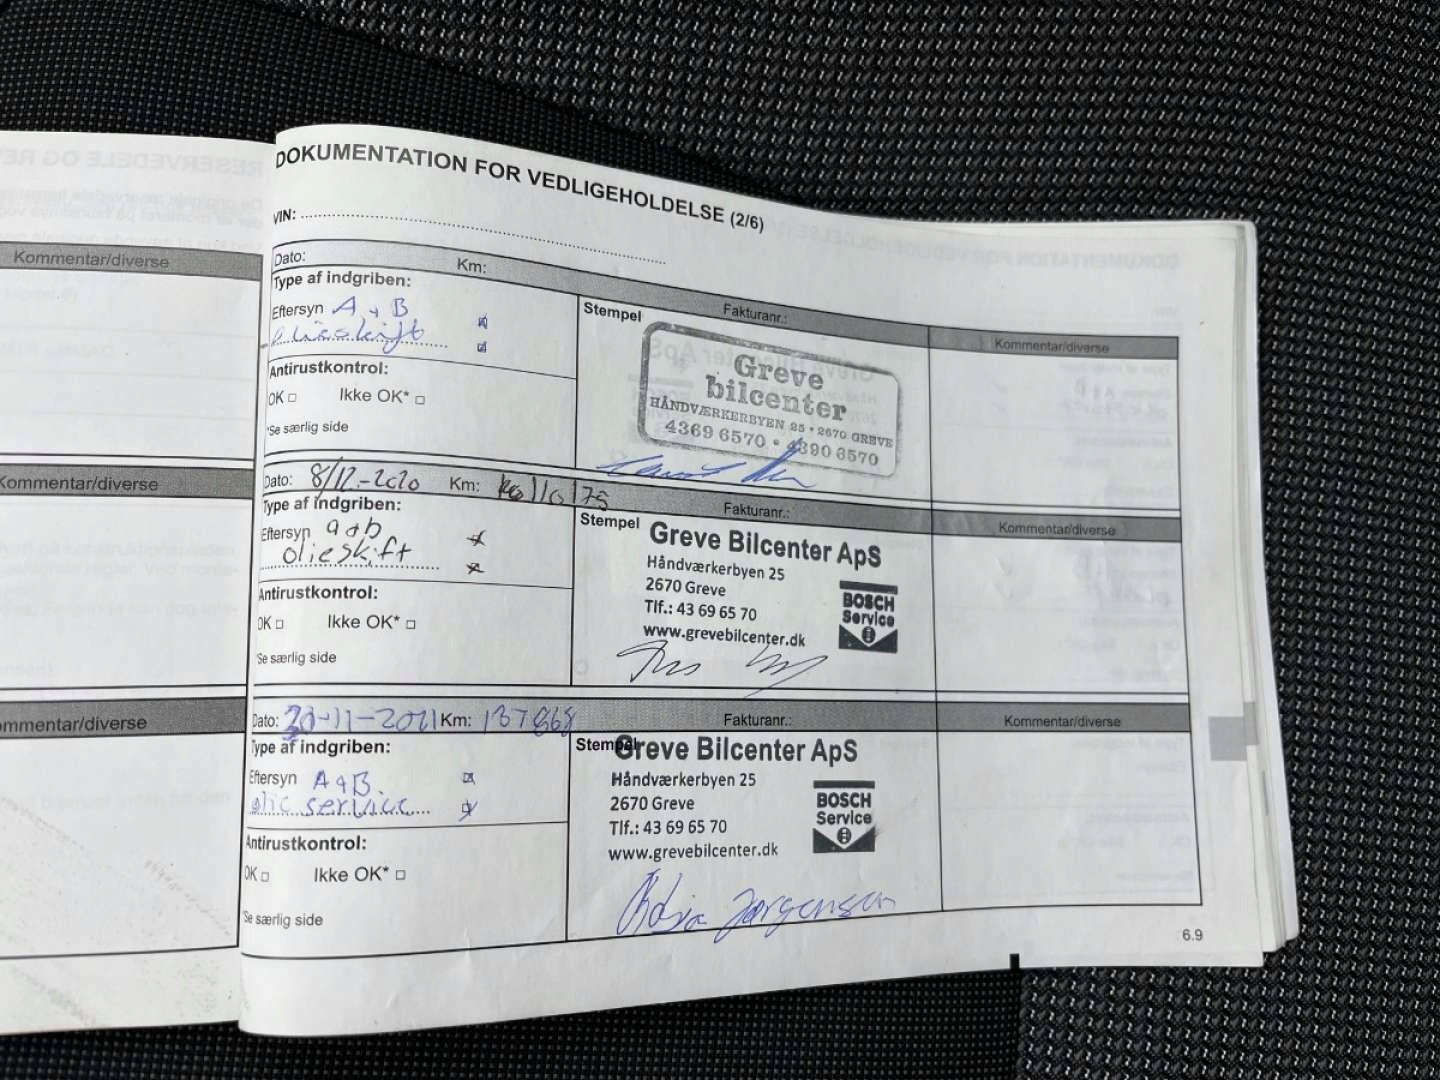 RESERVEDELE OG RE
DOKUMENTATION FOR VEDLIGEHOLDELSE (2/6)
VIN:
Kommentar/diverse
Dato: Km: Fakturanr.: Kommentar/diverse
Type af indgriben:
Eftersyn A + B
olieskift
Antirustkontrol:
OK Ikke OK*
*Se særlig side
Stempel
Greve
bilcenter
HÅNDVÆRKERBYEN 25 • 2670 GREVE
4369 6570 • 4390 6570
Kommentar/diverse
Dato: 8/12-2020 Km: Fakturanr.: Kommentar/diverse
Type af indgriben:
Eftersyn a+b
olieskift
Antirustkontrol:
OK Ikke OK*
*Se særlig side
Stempel
Greve Bilcenter ApS
Håndværkerbyen 25
2670 Greve
Tlf.: 43 69 65 70
www.grevebilcenter.dk
BOSCH
Service
Kommentar/diverse
Dato: -11-2021 Km: Fakturanr.: Kommentar/diverse
Type af indgriben:
Eftersyn A+B.
olie service
Antirustkontrol:
OK Ikke OK*
*Se særlig side
Stempel
Greve Bilcenter ApS
Håndværkerbyen 25
2670 Greve
Tlf.: 43 69 65 70
www.grevebilcenter.dk
BOSCH
Service
Jørgensen
6.9